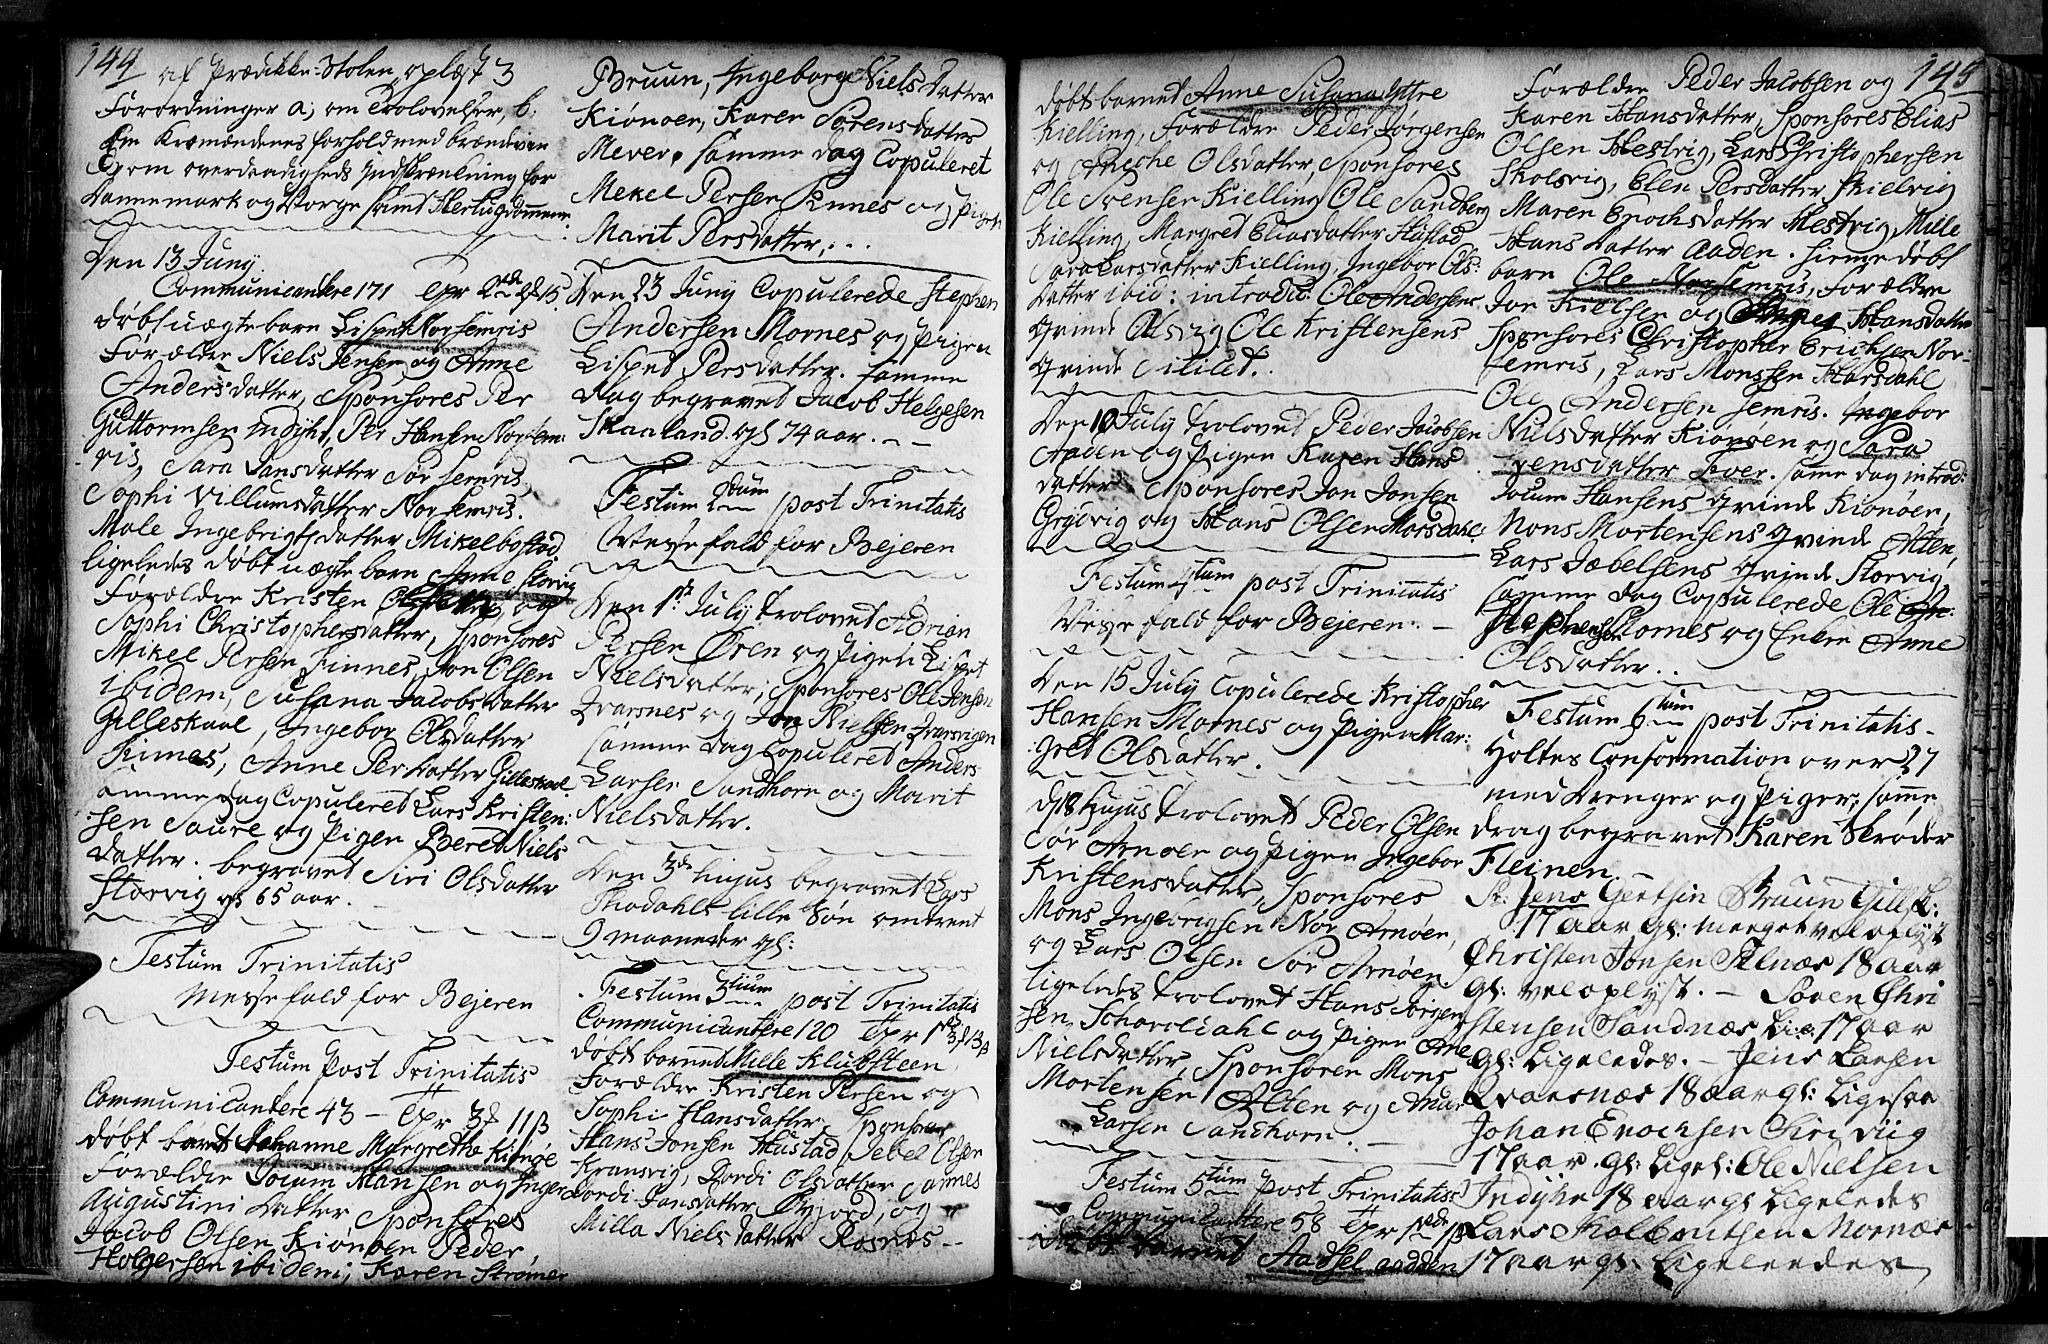 144
af Prædikke-Stolen oplæst 3
Forordninger a; om Trolovelser, b;
Om Kræmondenes forhold med brændeviin
C; om overdaadigheds Indskrænkning for
Dannemark og Norge samt Hertugdømmene
Den 13 Juny
Communicantere 171
døbt uægte barn Lisbet Norsemris
Forældre Niels Jensen og Anne
Andersdatter, Sponsores Per
Guttormsen Indyhr, Per Hansen Norsem-
ris, Sara Jansdatter Sør Semris,
Sophi Villumsdatter Norsemris.
Male Ingebrigtsdatter Mikelbostad
ligeledes døbt uægte barn Anne Storvig
Forældre Kristen og
Sophi Christophersdatter, Sponsores
Mikel Persen Finnes, Jon Olsen
ibidem, Susana Jacobsdatter
Gilleskaal, Ingebor Olsdatter
Finnes, Anne Persdatter Gilleskaal
samme dag Copuleret Lars Kristen:
sen Saure og Pigen Beret Niels
datter. begravet Siri Olsdatter
Storvig gl 65 aar.
Festum Trinitatis
Messefald for Bejeren
Festum post Trinitatis
Communicantere 43 — Tpr 3 11 ß
døbt barnet Johanne Margrethe Kiønøe
Forældre Jocum Hansen og Inger
Augustini datter Sponsores
Jacob Olsen Kiønøen Peder
Holgersen ibidem; Karen Strømer
Bruun, Ingeborg Nielsdatter
Kiønøen, Karen Sørensdatter
Mever. samme dag Copuleret
Mekel Persen Ennes og Pigen
Marit Persdatter;
Den 23 Juny Copulerede Stephen
Andersen Mornes og Pigen
Lisbet Persdatter. samme
dag begravet Jacob Helgesen
Skaaland gl 74 aar.
Festum 2dum post Trinitatis
Messefald for Bejeren
Den 1st July trolovet Adrian
Persen Øren og Pigen Lisbet
Nielsdatter; Sponsores Ole Jensen
Qvarsnes og Jon Nielsen Qvarsvigen
samme dag Copuleret Anders
Larsen Sandhorn og Marit
Nielsdatter.
Den 3de hujus begravet Lars
lille Søn omtrent
9 maaneder gl:
Festum 3tium post Trinitatis
Communicantere 120
døbt barnet Mille Klubsteen
Forældre Kristen Persen og
Sophi Hansdatter, Sponsores
Hans Jonsen Hustad, Jebel Olsen
Kransvig, Dordi Olsdatter Sannes
Dordi Jansdatter og
Milla Nielsdatter Rosnæs
145
døbt barnet Anne Susana Yttre
Kielling, Forældre Peder Jørgensen
og Olsdatter, Sponsores
Ole Svensen Kielling, Ole Sandberg
Kielling, Margred Eliasdatter Hustad,
Sara Larsdatter Kielling, Ingebor Ols:
datter ibid: introdu: Ole Andersens
Qvinde Olsvig Ole Kristensens
Qvinde
Den 10 July trolovet Peder Jacobsen
Aaden og Pigen Karen Hans
datter Sponsores Jon Jonsen
Grydvig og Hans Olsen Morsdahl
Festum 4tum post Trinitatis
Messefald for Bejeren.
Den 15 July Copulerede Kristopher
Hansen Mornes og Pigen Mar:
gret Olsdatter.
d 18 hujus trolovet Peder Olsen
Sør Arnøen og Pigen Ingebor
Kristensdatter, Sponsores
Mons Ingebrigtsen Nor Arnøen,
og Lars Olsen Sør Arnøen
ligeledes trolovet Hans Jørgen
sen og Pigen Ane
Nielsdatter, Sponsoren Mons
Mortensen Alten og Amun
Larsen Sandhorn.
Festum 5tum post Trinitatis
Communicantere 58
døbt barnet Aadsel aadden
Forældre Peder Jacobsen og
Karen Hansdatter, Sponsores Elias
Olsen Hestvig, Lars Christophersen
Skolsvig, Elen Persdatter Skielvig
Maren Enochsdatter Hestvig, Mille
Hansdatter Aaden. hiemedøbt
barn Ole Norsemris, Forældre
Jon Kielsen og Hansdatter
Sponsores Christopher Erichsen Nor-
semris, Lars Monssen Harsdahl
Ole Andersen Semris. Ingebor
Nielsdatter Kiønøen og Sara
samme dag introd:
Jocum Hansens Qvinde Kiønøen,
Mons Mortensens Qvinde Alten,
Lars Jæbelsens Qvinde Storvig,
samme dag Copulerede Ole
Stephensen Mornes og Enken Anne
Olsdatter.
Festum 6tum post Trinitatis
Holtes Confirmation over 27
med drenger og Piger; samme
dag begravet Karen Skrøder
Fleinen.
Jens Gertsen Bruun Gillesk:
17 aar gl: meeget vel oplyst
Christen Jonsen Selnæs 18 aar
gl: vel oplyst. — Søren Chri
stensen Sandnæs 17 aar
gl: Ligeledes. — Jens Larsen
Qvarsnæs 18 aar gl: Ligesaa
Johan Enochsen
17 aar gl: Ligel: Ole Nielsen
Indyhr 18 aar gl Ligeledes
Lars Kolbentsen Mornæs
17 aar gl: Ligeledes